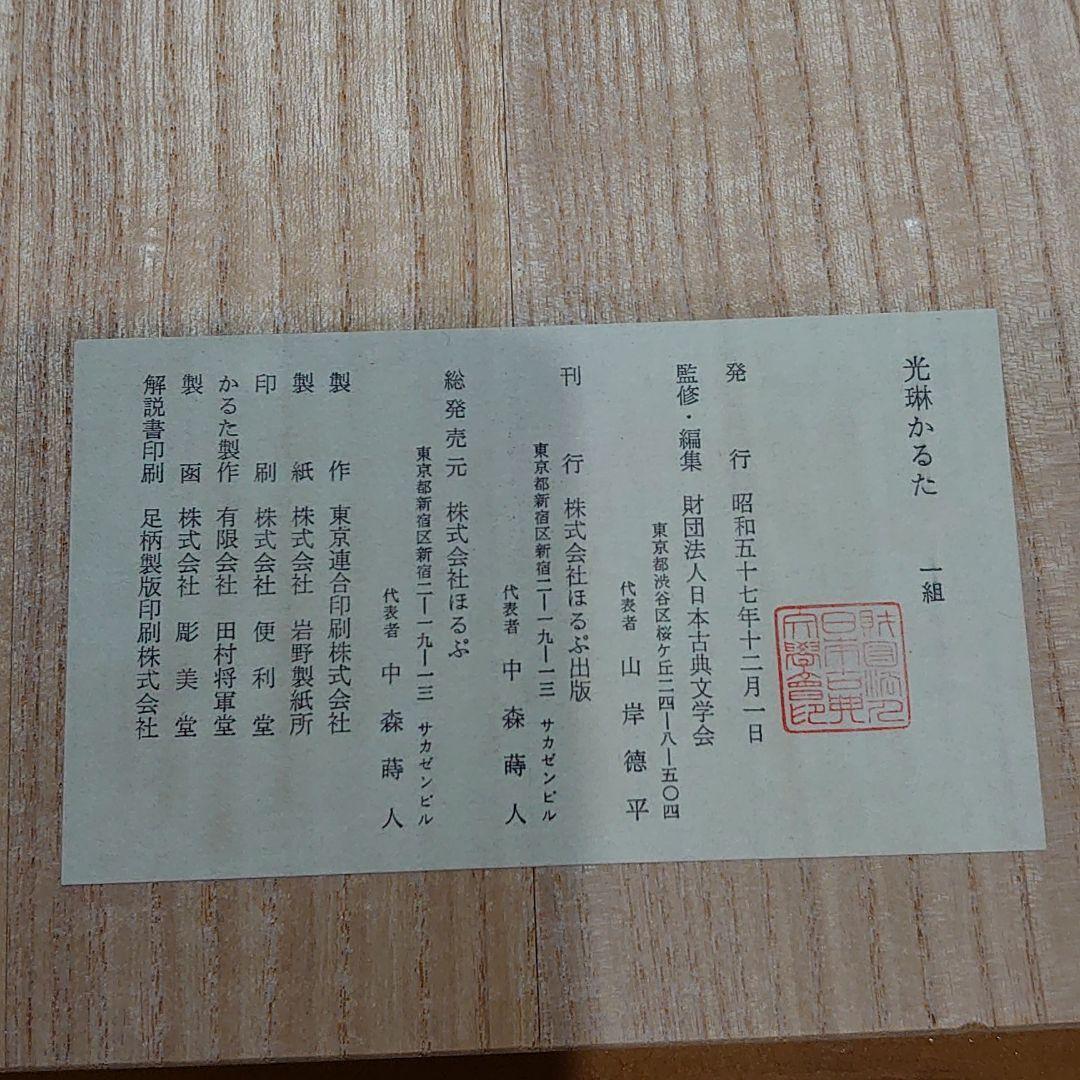 光琳かるた 一組
発行 昭和五十七年十二月一日
監修・編集 財団法人日本古典文学会
東京都渋谷区桜ケ丘二四―八―五〇四
代表者 山岸徳平
刊行 株式会社ほるぷ出版
東京都新宿区新宿二―一九―一三 サカゼンビル
代表者 中森蒔人
総発売元 株式会社ほるぷ
東京都新宿区新宿二―一九―一三 サカゼンビル
代表者 中森蒔人
製作 東京連合印刷株式会社
製紙 株式会社岩野製紙所
印刷 株式会社便利堂
かるた製作 有限会社田村将軍堂
製函 株式会社彫美堂
解説書印刷 足柄製版印刷株式会社
財団法人日本古典文學會印